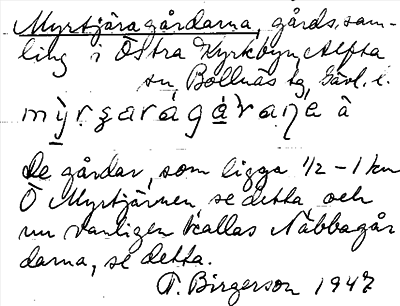 Myrtjäragårdarna, gårdssam-
ling i Östra Kyrkbyn, Alfta
sn, Bollnäs tg, Gävl. l.
De gårdar, som ligga 1/2 - 1 km
Ö Myrtjärnen, se detta och
nu vanligen kallas Näbbagår
darna, se detta.
T. Birgerson 1947